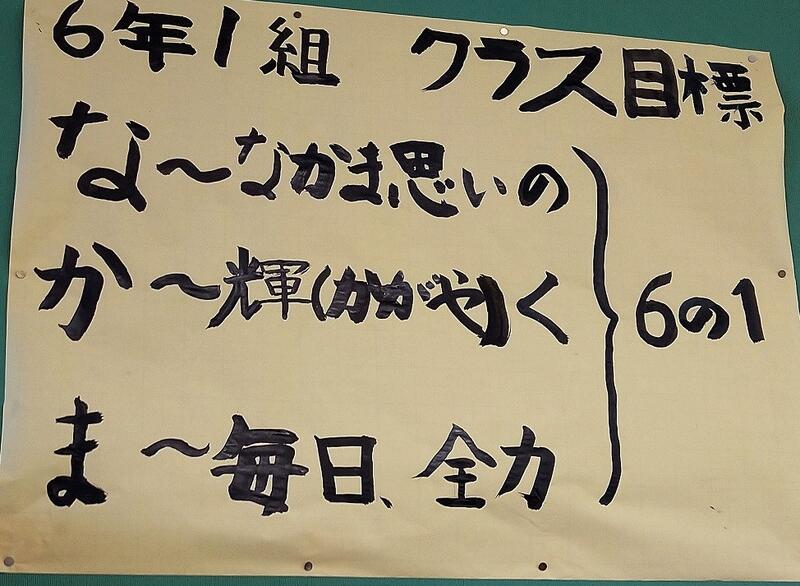 6年1組 クラス目標
な～なかま思いの
か～輝(かがや)く
ま～毎日、全力
6の1